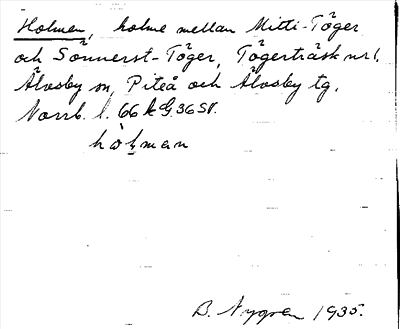 Holmen, holme mellan Mitti-Töger
och Sönnerst-Töger, Tögerträsk nr 1,
Älvsby sn, Piteå och Älvsby tg.
Norrb. l. 66 k G. 36 SV.
hòḻman
B. Nygren 1935.